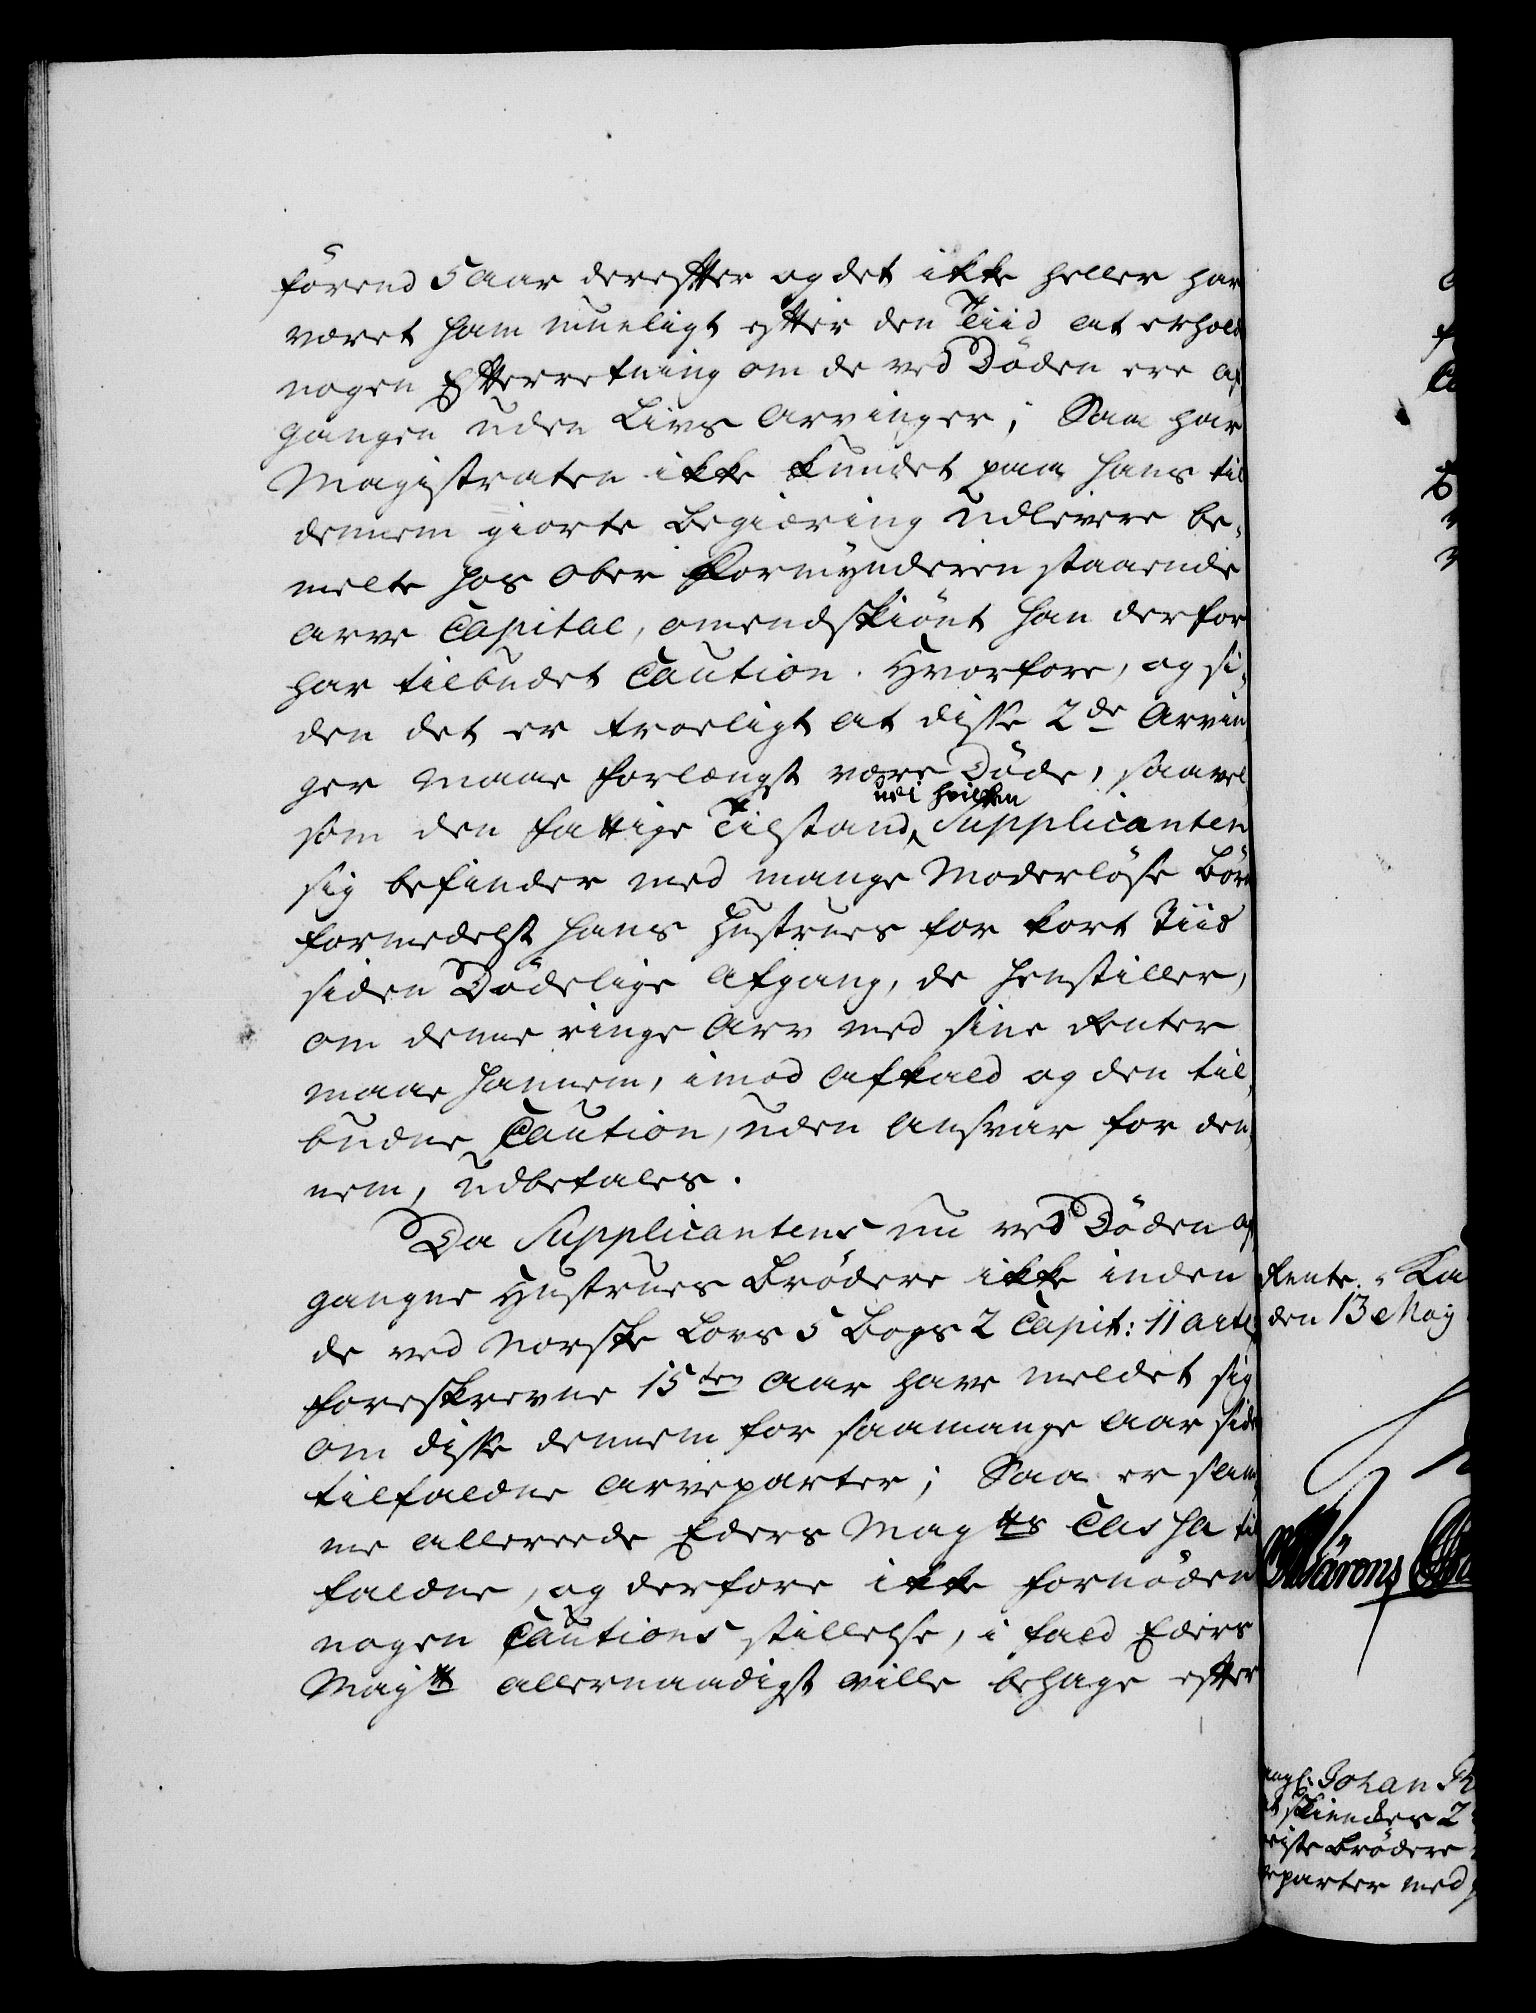 förend 5 Aar derefter og det ikke heller har
været ham mueligt efter den Tiid at erhold
nogen Efterretning om de ved Döden ere af
gangen uden Livs Arvinger; Saa har
Magistraten ikke kundet paa hans til
dennem giorte Begiæring udlevere be-
melte hos Ober Formynderen staaende
Arve Capital, omendskiönt han derfor
har tilbudet Caution. Hvorfore, og si-
den det er troeligt at disse 2de Arvin
ger maae forlængst være Döde, saavel
som den fattige Tilstand, udi hvilken Supplicanten
sig befinder med mange Moderlöse Börn
formedelst hans Hustrues for kort Tiid
siden Dödelige Afgang, de henstiller,
om denne ringe Arv med sine Renter
maae hannem, imod Afkald og den til-
budne Caution, uden Ansvar for den-
nem, udbetales.
Da Supplicantens nu ved Döden af
gangne Hustrues Brödere ikke inden
de ved Norske Lovs 5 Bogs 2 Capit: 11 Art:
foreskrevne 15ten Aar have meldet sig
om disse dennem for saamange Aar side
tilfaldne Arveparter; Saa er sam
me allereede Eders Mayts Cassa til
faldne, og derfore ikke fornöden
nogen Cautions stillelse, i fald Eders
Majt allernaadigst ville behage efter
Rente-Ka
den 13 May
Johan Th
skiendes 2
Brödere
parter med